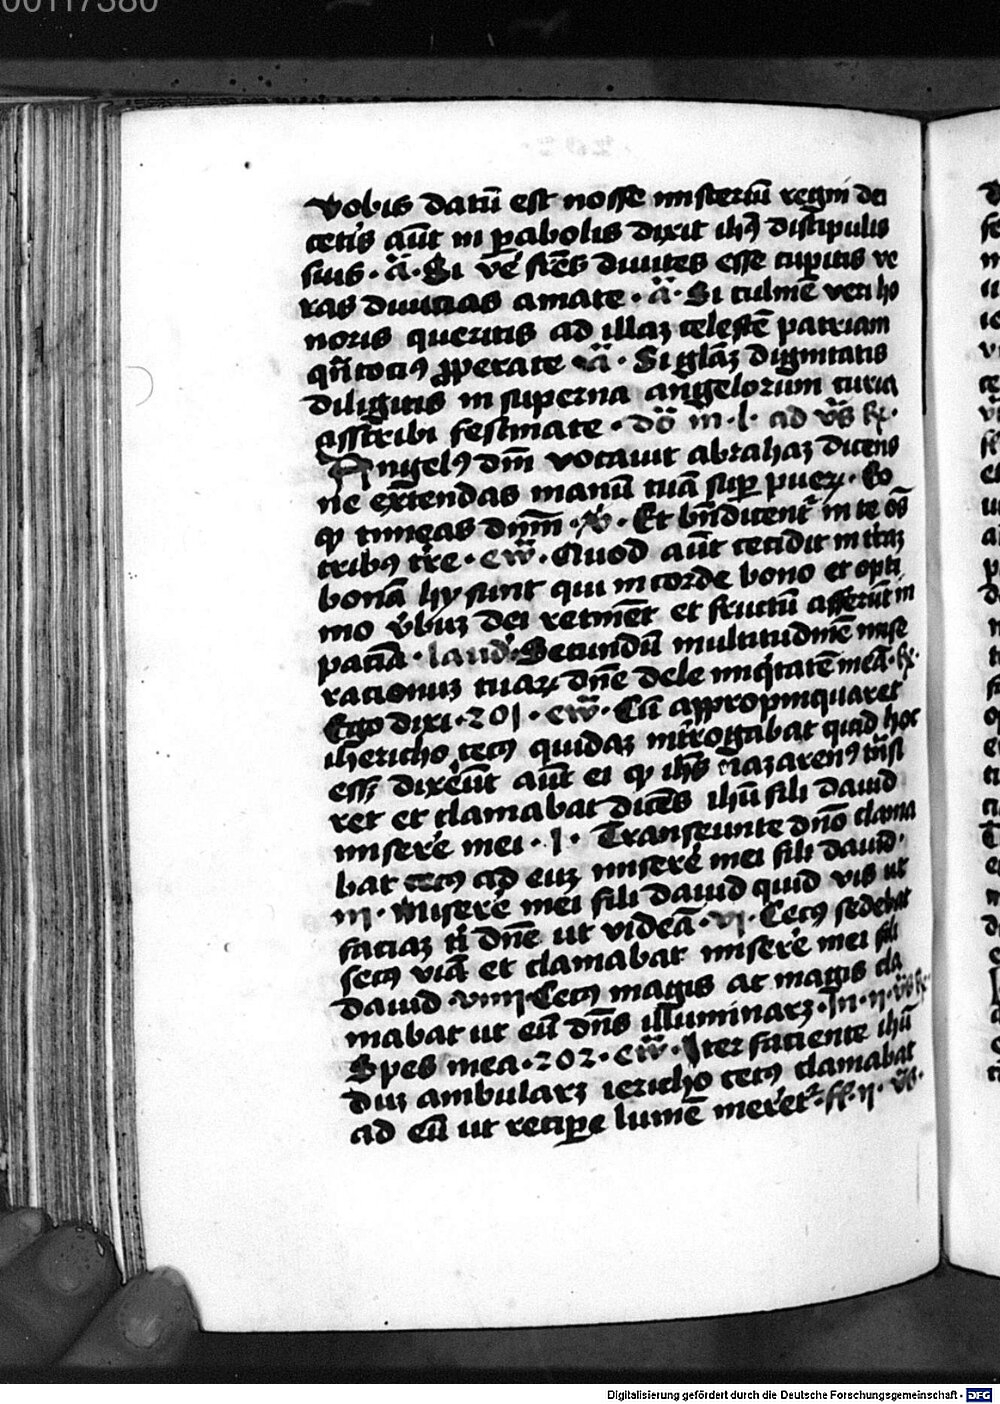 00117380
vobis datū est nosse misteriū regni dei
cetis aūt in pabolis dixit ihs discipulis
suis · ā · Si vē frēs diuites esse cupitis ve
ras diuicias amate · ā · Si culmē veri ho
noris queritis ad illaꝫ celestē patriam
qn̄tociꝰ pperate · ā · Si glāꝫ dignitatis
diligitis in superna angelorum curia
asscribi festinate · ad v̄s
Angelꝰ dm̄ vocauit abrahaꝫ dicens
ne extendas manū tuā sup pueꝝ · Eo
ꝙ timeas dnm̄ · Et bn̄dicent in te oēs
tribꝰ tre · ew̄ · Quod aūt cecidit in trāꝫ
bonā hy sunt qui in corde bono et opti
mo v̄buꝫ dei retinēt et fructū afferūt in
pacīa · laud · Secundū multitudinē mise
racionuꝫ tuaꝝ dn̄e dele iniqtatē meā ·
Ego dixi · 201 · ew̄ · Cū appropinquaret
ihericho cecꝰ quidaꝫ introgabat quid hoc
esseꝫ dixēūt aūt ei ꝙ ihs nazarenꝰ trnsi
ret et clamabat dicēs ihū fili dauid
miserē mei · 1 · Transeunte dnō clama
bat cecꝰ ad euꝫ miserē mei fili dauid ·
Miserē mei fili dauid quid vis ut
faciaꝫ ti dn̄e ut videā · vj · Cecꝰ sedebat
secꝰ viā et clamabat miserē mei fili
dauid · Cecꝰ magis ac magis cla
mabat ut eū dn̄s illuminarꝫ · In · ij ·
Spes mea · 202 · ew̄ · Iter faciente ihū
duꝫ ambularꝫ iericho cecꝰ clamabat
ad eū ut recipe lumē meret · ij · v̄s ·
Digitalisierung gefördert durch die Deutsche Forschungsgemeinschaft - DFG